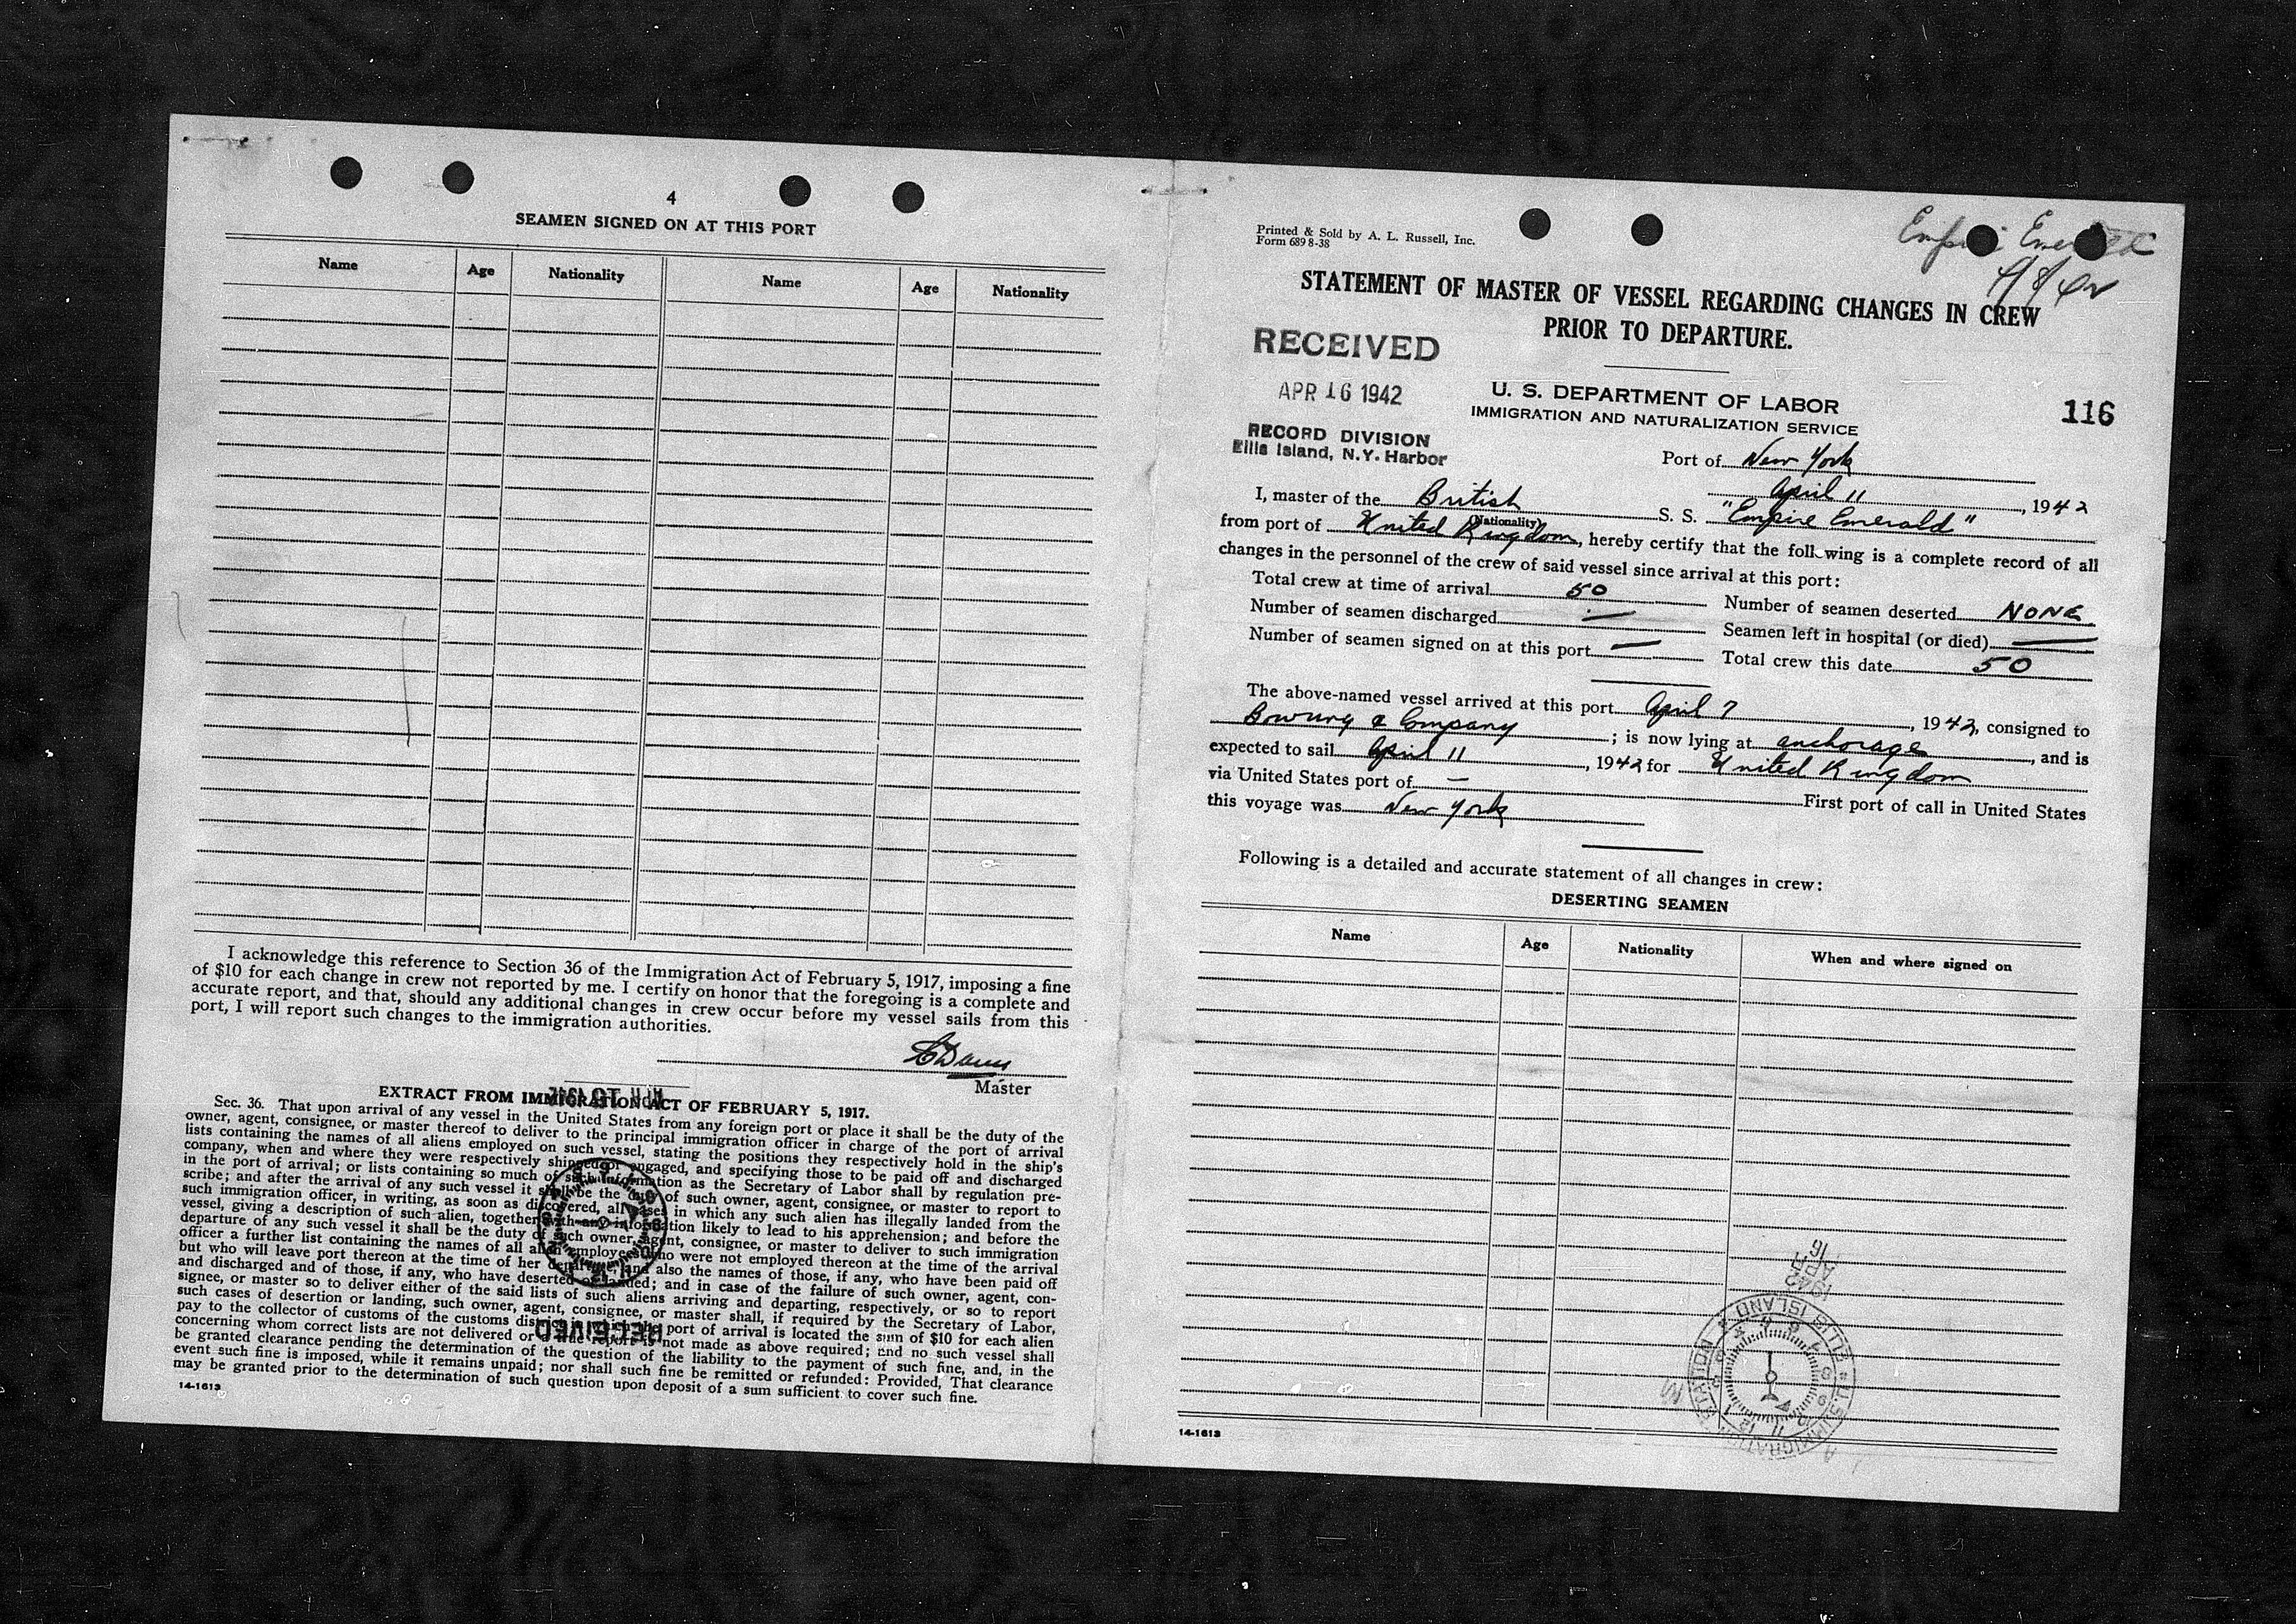 4
SEAMEN SIGNED ON AT THIS PORT
Name Age Nationality Name Age Nationality
I acknowledge this reference to Section 36 of the Immigration Act of February 5, 1917, imposing a fine
of $10 for each change in crew not reported by me. I certify on honor that the foregoing is a complete and
accurate report, and that, should any additional changes in crew occur before my vessel sails from this
port, I will report such changes to the immigration authorities.
Master
EXTRACT FROM IMMIGRATION ACT OF FEBRUARY 5, 1917.
Sec. 36. That upon arrival of any vessel in the United States from any foreign port or place it shall be the duty of the
owner, agent, consignee, or master thereof to deliver to the principal immigration officer in charge of the port of arrival
lists containing the names of all aliens employed on such vessel, stating the positions they respectively hold in the ship's
company, when and where they were respectively shipped or engaged, and specifying those to be paid off and discharged
in the port of arrival; or lists containing so much of such information as the Secretary of Labor shall by regulation pre-
scribe; and after the arrival of any such vessel it shall be the duty of such owner, agent, consignee, or master to report to
such immigration officer, in writing, as soon as discovered, all cases in which any such alien has illegally landed from the
vessel, giving a description of such alien, together with any information likely to lead to his apprehension; and before the
departure of any such vessel it shall be the duty of such owner, agent, consignee, or master to deliver to such immigration
officer a further list containing the names of all alien employees who were not employed thereon at the time of the arrival
but who will leave port thereon at the time of her departure, and also the names of those, if any, who have been paid off
and discharged and of those, if any, who have deserted or landed; and in case of the failure of such owner, agent, con-
signee, or master so to deliver either of the said lists of such aliens arriving and departing, respectively, or so to report
such cases of desertion or landing, such owner, agent, consignee, or master shall, if required by the Secretary of Labor,
pay to the collector of customs of the customs district in which the port of arrival is located the sum of $10 for each alien
concerning whom correct lists are not delivered or a true report is not made as above required; and no such vessel shall
be granted clearance pending the determination of the question of the liability to the payment of such fine, and, in the
event such fine is imposed, while it remains unpaid; nor shall such fine be remitted or refunded: Provided, That clearance
may be granted prior to the determination of such question upon deposit of a sum sufficient to cover such fine.
RECEIVED
14-1613
Printed & Sold by A. L. Russell, Inc.
Form 689 8-38
Empire Emerald
STATEMENT OF MASTER OF VESSEL REGARDING CHANGES IN CREW
PRIOR TO DEPARTURE.
RECEIVED
APR 16 1942
RECORD DIVISION
Ellis Island, N.Y. Harbor
U. S. DEPARTMENT OF LABOR
IMMIGRATION AND NATURALIZATION SERVICE
116
Port of New York
April 11, 1942
I, master of the British S. S. "Empire Emerald"
(Nationality)
from port of United Kingdom, hereby certify that the following is a complete record of all
changes in the personnel of the crew of said vessel since arrival at this port:
Total crew at time of arrival 50 Number of seamen deserted NONE
Number of seamen discharged — Seamen left in hospital (or died) —
Number of seamen signed on at this port — Total crew this date 50
The above-named vessel arrived at this port April 7, 1942, consigned to
Bowring & Company; is now lying at anchorage, and is
expected to sail April 11, 1942 for United Kingdom
via United States port of — First port of call in United States
this voyage was New York
Following is a detailed and accurate statement of all changes in crew:
DESERTING SEAMEN
Name Age Nationality When and where signed on
1942
APR
16
U.S. IMMIGRATION STATION ELLIS ISLAND
14-1613